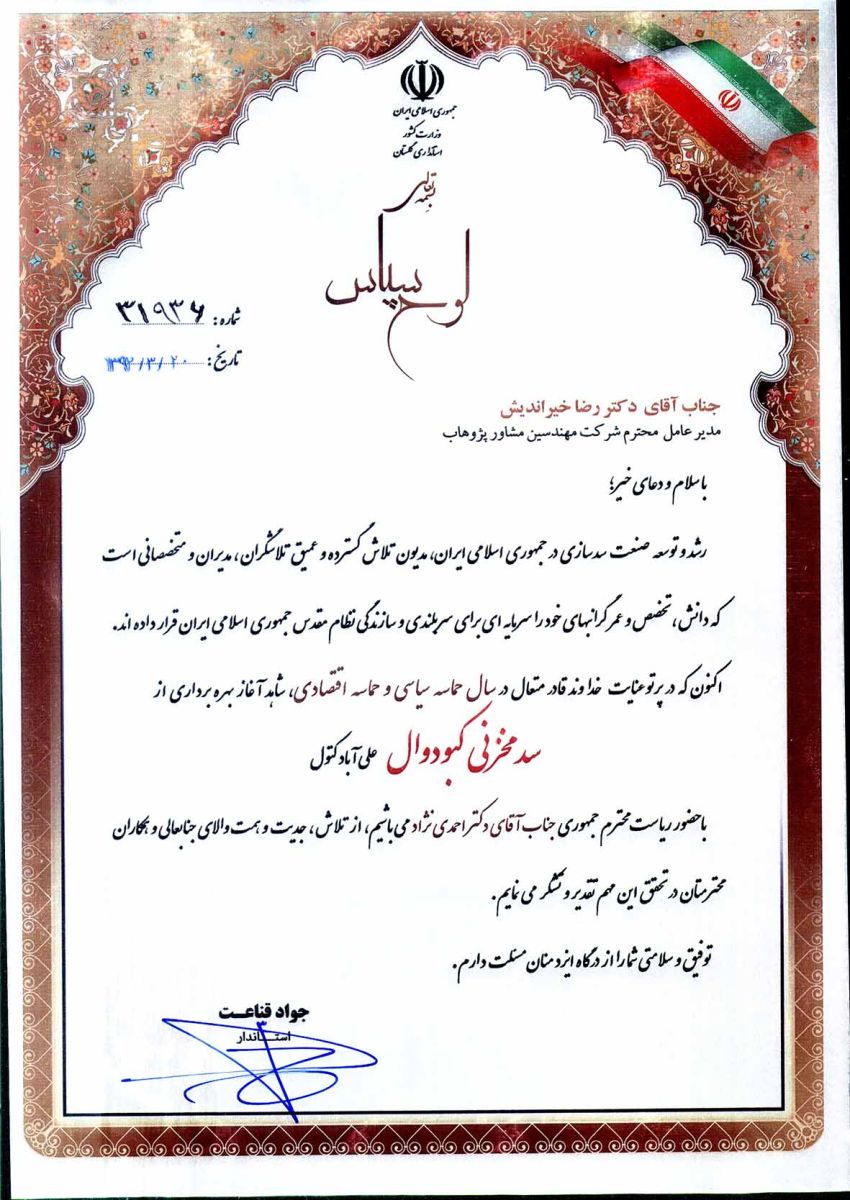 جمهوری اسلامی ایران
وزارت کشور
استانداری گلستان
بسمه تعالی
لوح سپاس
شماره: ۳۱۹۳۶
تاریخ: ۱۳۹۲/۳/۲۰
جناب آقای دکتر رضا خیراندیش
مدیر عامل محترم شرکت مهندسین مشاور پژوهاب
با سلام و دعای خیر؛
رشد و توسعه صنعت سدسازی در جمهوری اسلامی ایران، مدیون تلاش گسترده و عمیق تلاشگران، مدیران و متخصصانی است
که دانش، تخصص و عمر گرانبهای خود را سرمایه ای برای سربلندی و سازندگی نظام مقدس جمهوری اسلامی ایران قرار داده اند.
اکنون که در پرتو عنایت خداوند قادر متعال در سال حماسه سیاسی و حماسه اقتصادی، شاهد آغاز بهره برداری از
سد مخزنی کبودوال علی آباد کتول
با حضور ریاست محترم جمهوری جناب آقای دکتر احمدی نژاد می باشیم، از تلاش، جدیت و همت والای جنابعالی و همکاران
محترمتان در تحقق این مهم تقدیر و تشکر می نمایم.
توفیق و سلامتی شما را از درگاه ایزد منان مسئلت دارم.
جواد قناعت
استاندار